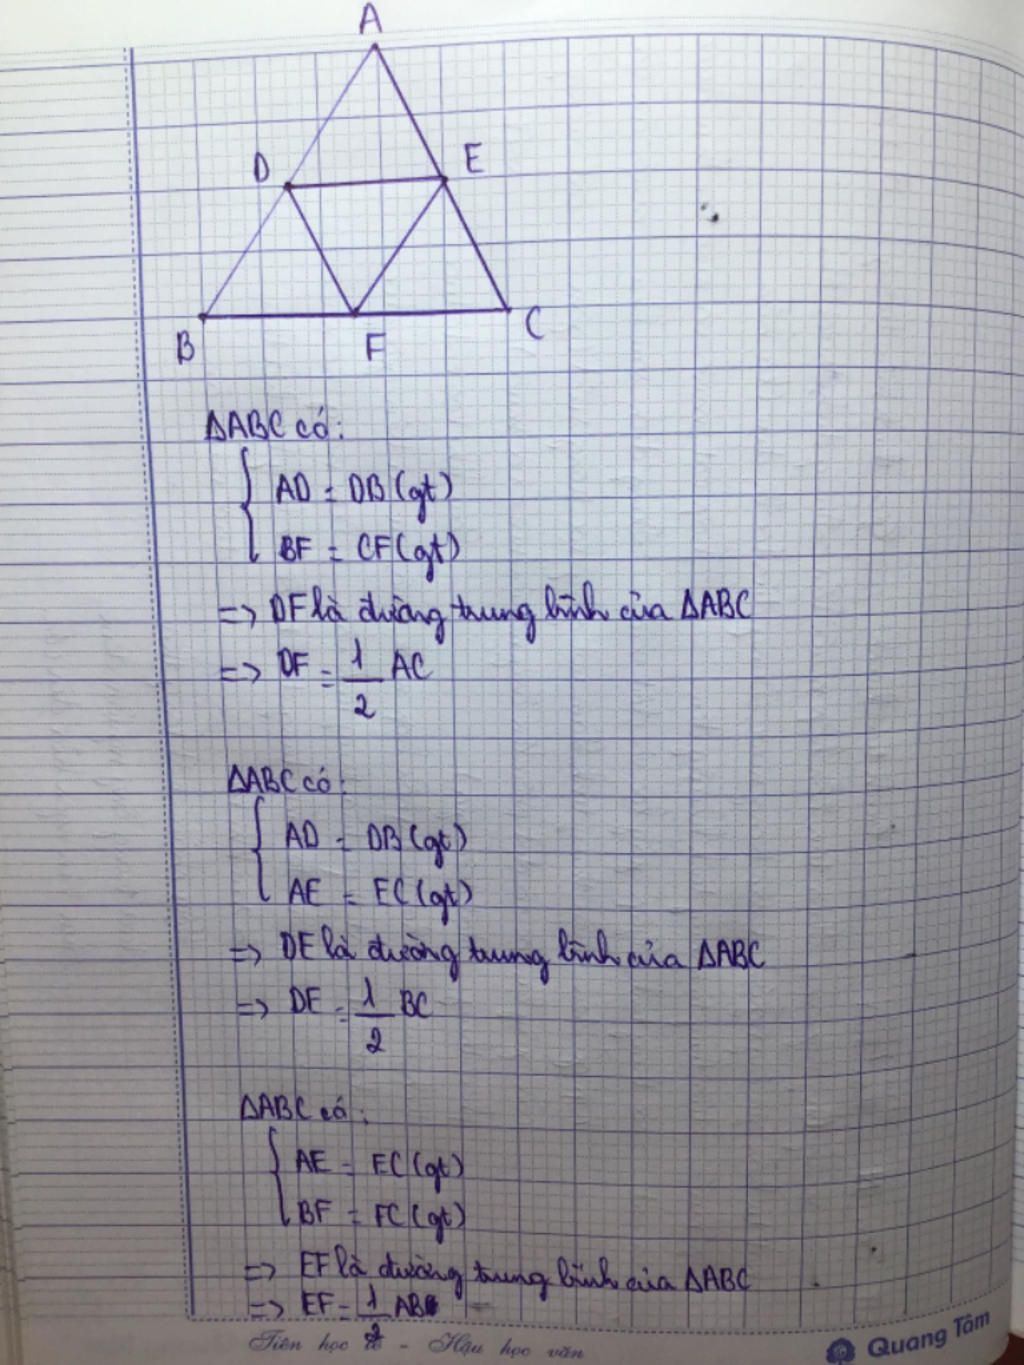 A
D
E
B
F
C
ΔABC có:
AD = DB (gt)
BF = CF (gt)
=> DF là đường trung bình của ΔABC
=> DF = 1/2 AC
ΔABC có:
AD = DB (gt)
AE = EC (gt)
=> DE là đường trung bình của ΔABC
=> DE = 1/2 BC
ΔABC có:
AE = EC (gt)
BF = FC (gt)
=> EF là đường trung bình của ΔABC
=> EF = 1/2 AB
Tiên học lễ - Hậu học văn
Quang Tâm